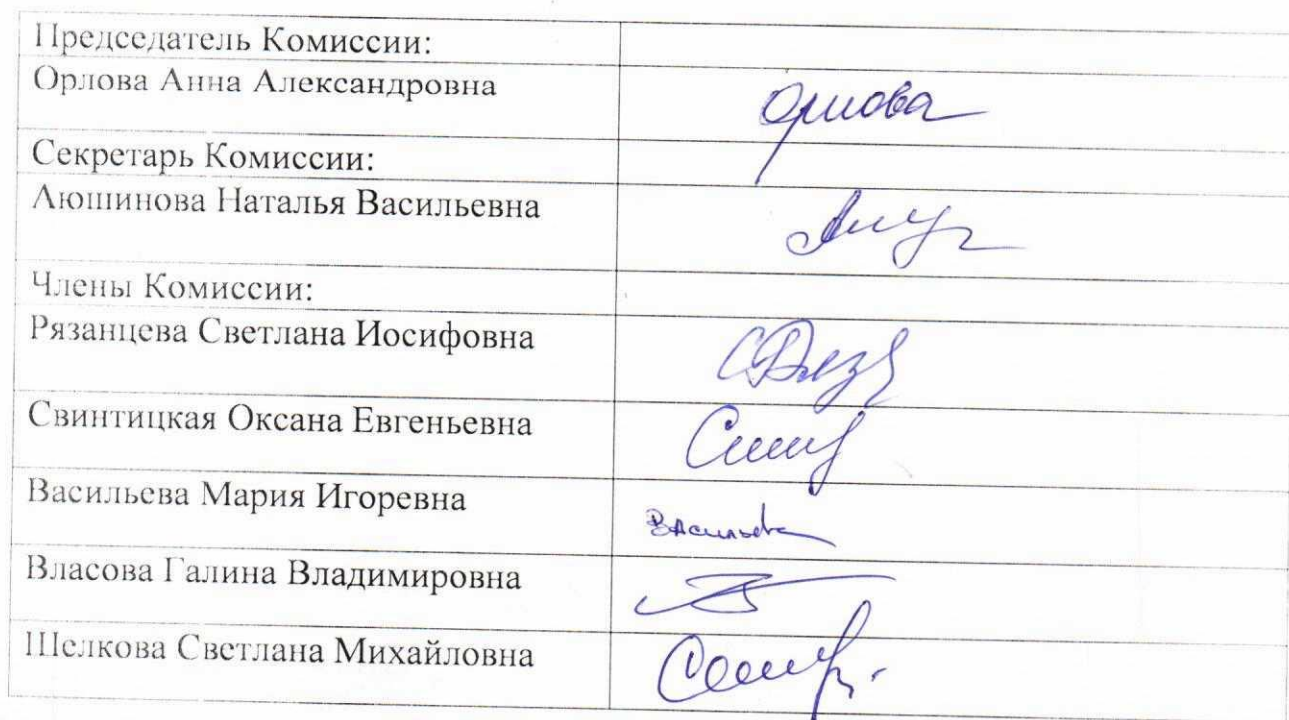 Председатель Комиссии:
Орлова Анна Александровна Орлова
Секретарь Комиссии:
Люшинова Наталья Васильевна
Члены Комиссии:
Рязанцева Светлана Иосифовна
Свинтицкая Оксана Евгеньевна
Васильева Мария Игоревна Васильева
Власова Галина Владимировна
Шелкова Светлана Михайловна